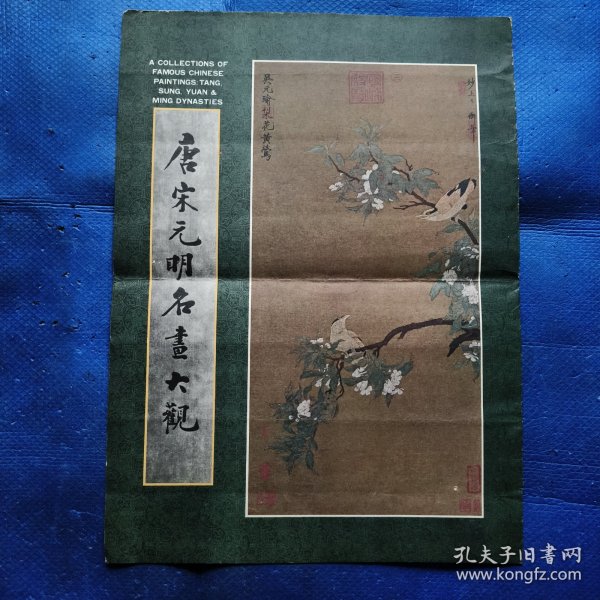 A COLLECTIONS OF
FAMOUS CHINESE
PAINTINGS: TANG,
SUNG, YUAN &
MING DYNASTIES
唐宋元明名畫大觀
吳元瑜梨花黃鶯
孔夫子旧书网
www.kongfz.com